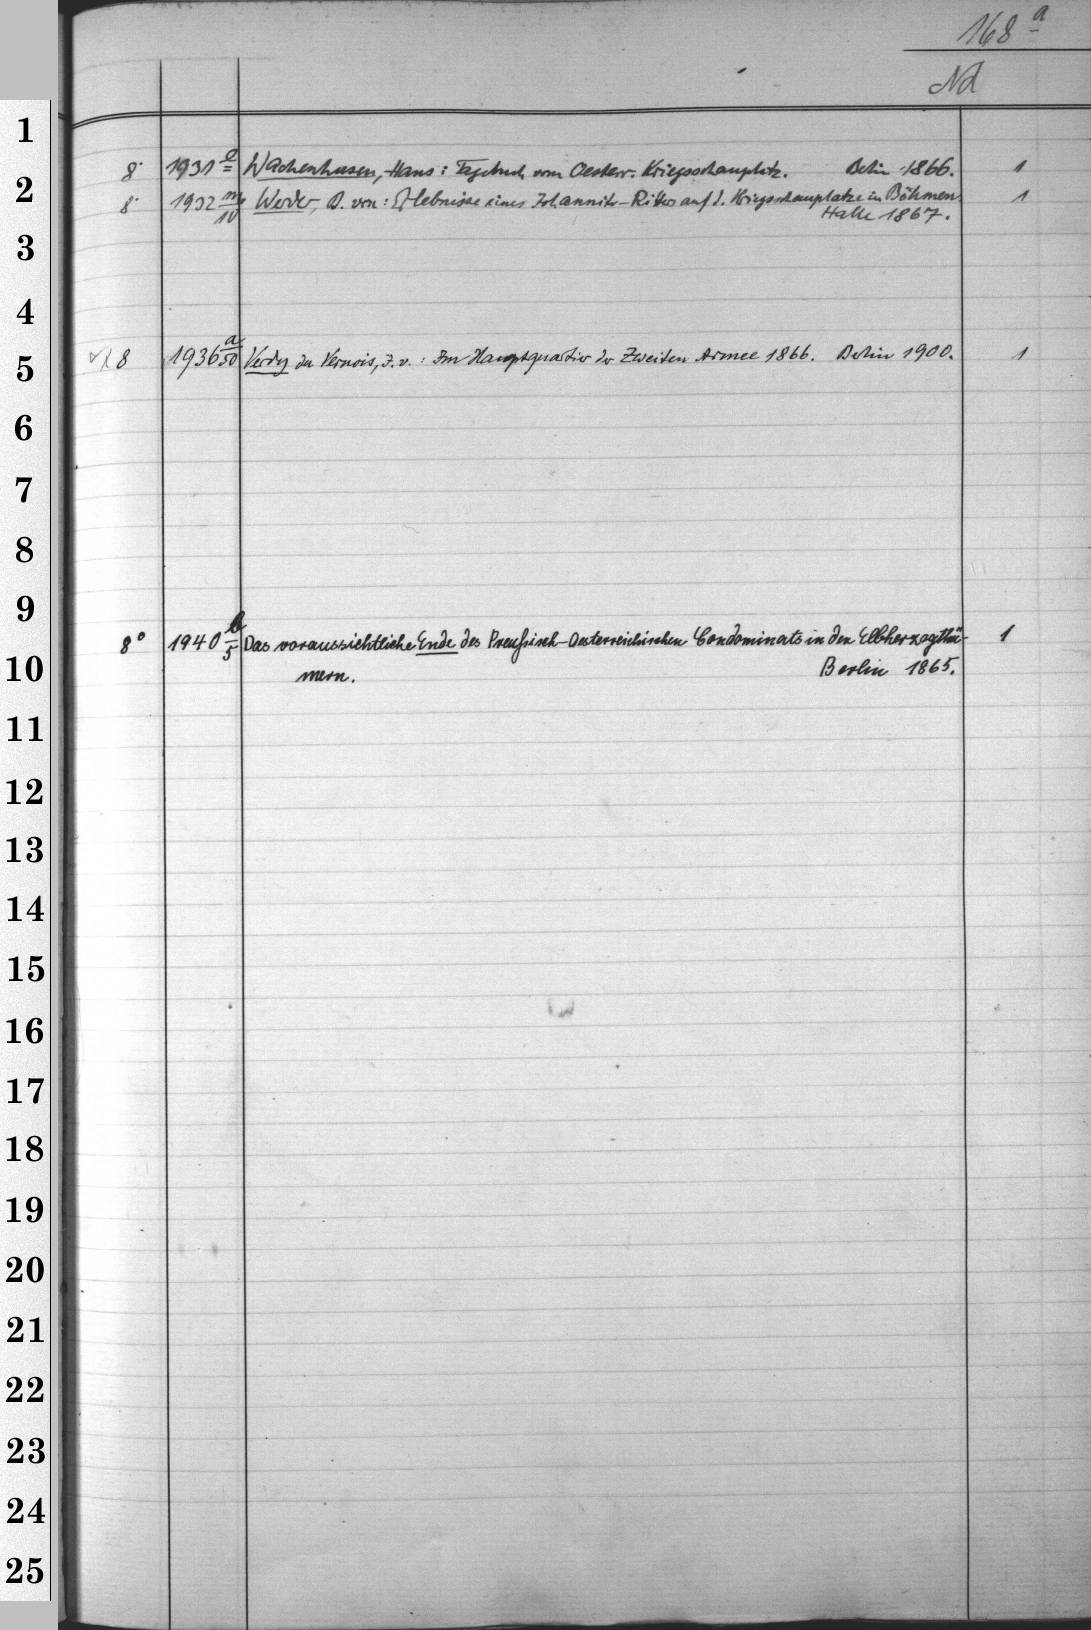 168 a
Nd
8° 1931 e = Wachenhusen, Hans: Tagebuch vom Oesterr. Kriegsschauplatz. Berlin 1866. 1
8° 1932 m/10 Werder, B. von: Erlebnisse eines Johanniter-Ritters auf d. Kriegsschauplatze in Böhmen
Halle 1867. 1
8 1936 a/50 Verdy du Vernois, J. v.: Im Hauptquartier der Zweiten Armee 1866. Berlin 1900. 1
8° 1940 b/5 Das voraussichtliche Ende des Preußisch-Oesterreichischen Condominats in den Elbherzogthü- 1
mern. Berlin 1865.
1
2
3
4
5
6
7
8
9
10
11
12
13
14
15
16
17
18
19
20
21
22
23
24
25